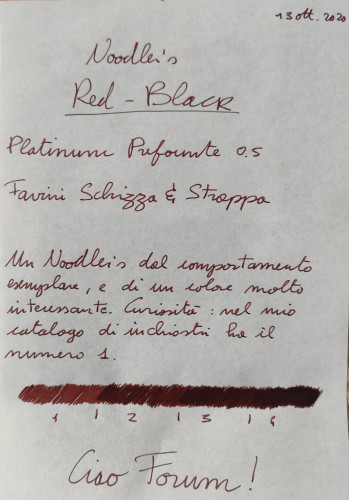 13 ott. 2020
Noodler's
Red-Black
Platinum Prefounte 0.5
Favini Schizza & Strappa
Un Noodler's dal comportamento
esemplare, e di un colore molto
interessante. Curiosità: nel mio
catalogo di inchiostri ha il
numero 1.
1 | 2 | 3 | 4
Ciao Forum!